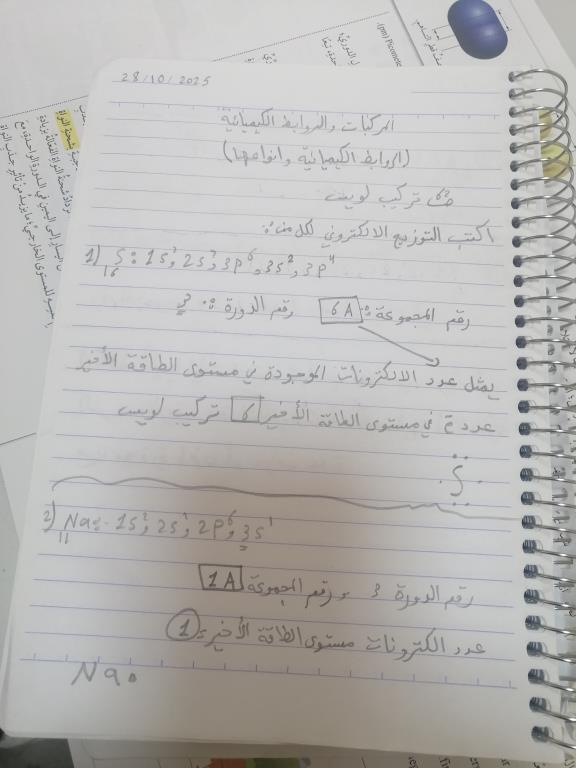 (pm) Picomete
28/10/2025
المركبات والروابط الكيميائية
(الروابط الكيميائية وانواعها)
تركيب لويس
اكتب التوزيع الالكتروني لكل من :
1) ₁₆S : 1s², 2s², 3p⁶, 3s², 3p⁴
رقم المجموعة : 6A رقم الدورة : 3
يمثل عدد الالكترونات الموجودة في مستوى الطاقة الأخير
عدد e في مستوى الطاقة الأخير 6 تركيب لويس
S
2) ₁₁Na : 1s², 2s², 2p⁶, 3s¹
رقم الدورة 3 ورقم المجموعة 1A
عدد الكترونات مستوى الطاقة الأخير = 1
Na •